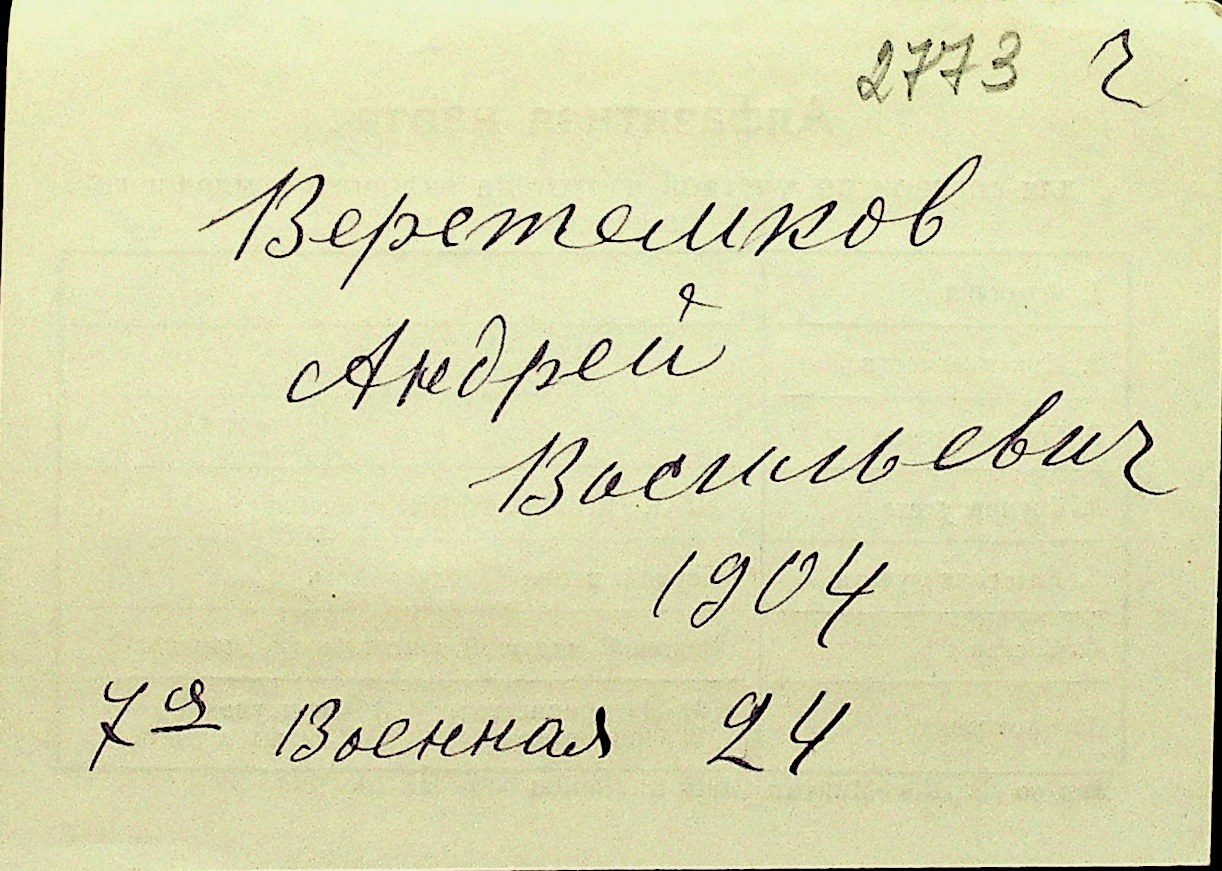 2773 ч
Веретемков
Андрей
Васильевич
1904
7ая Военная 24